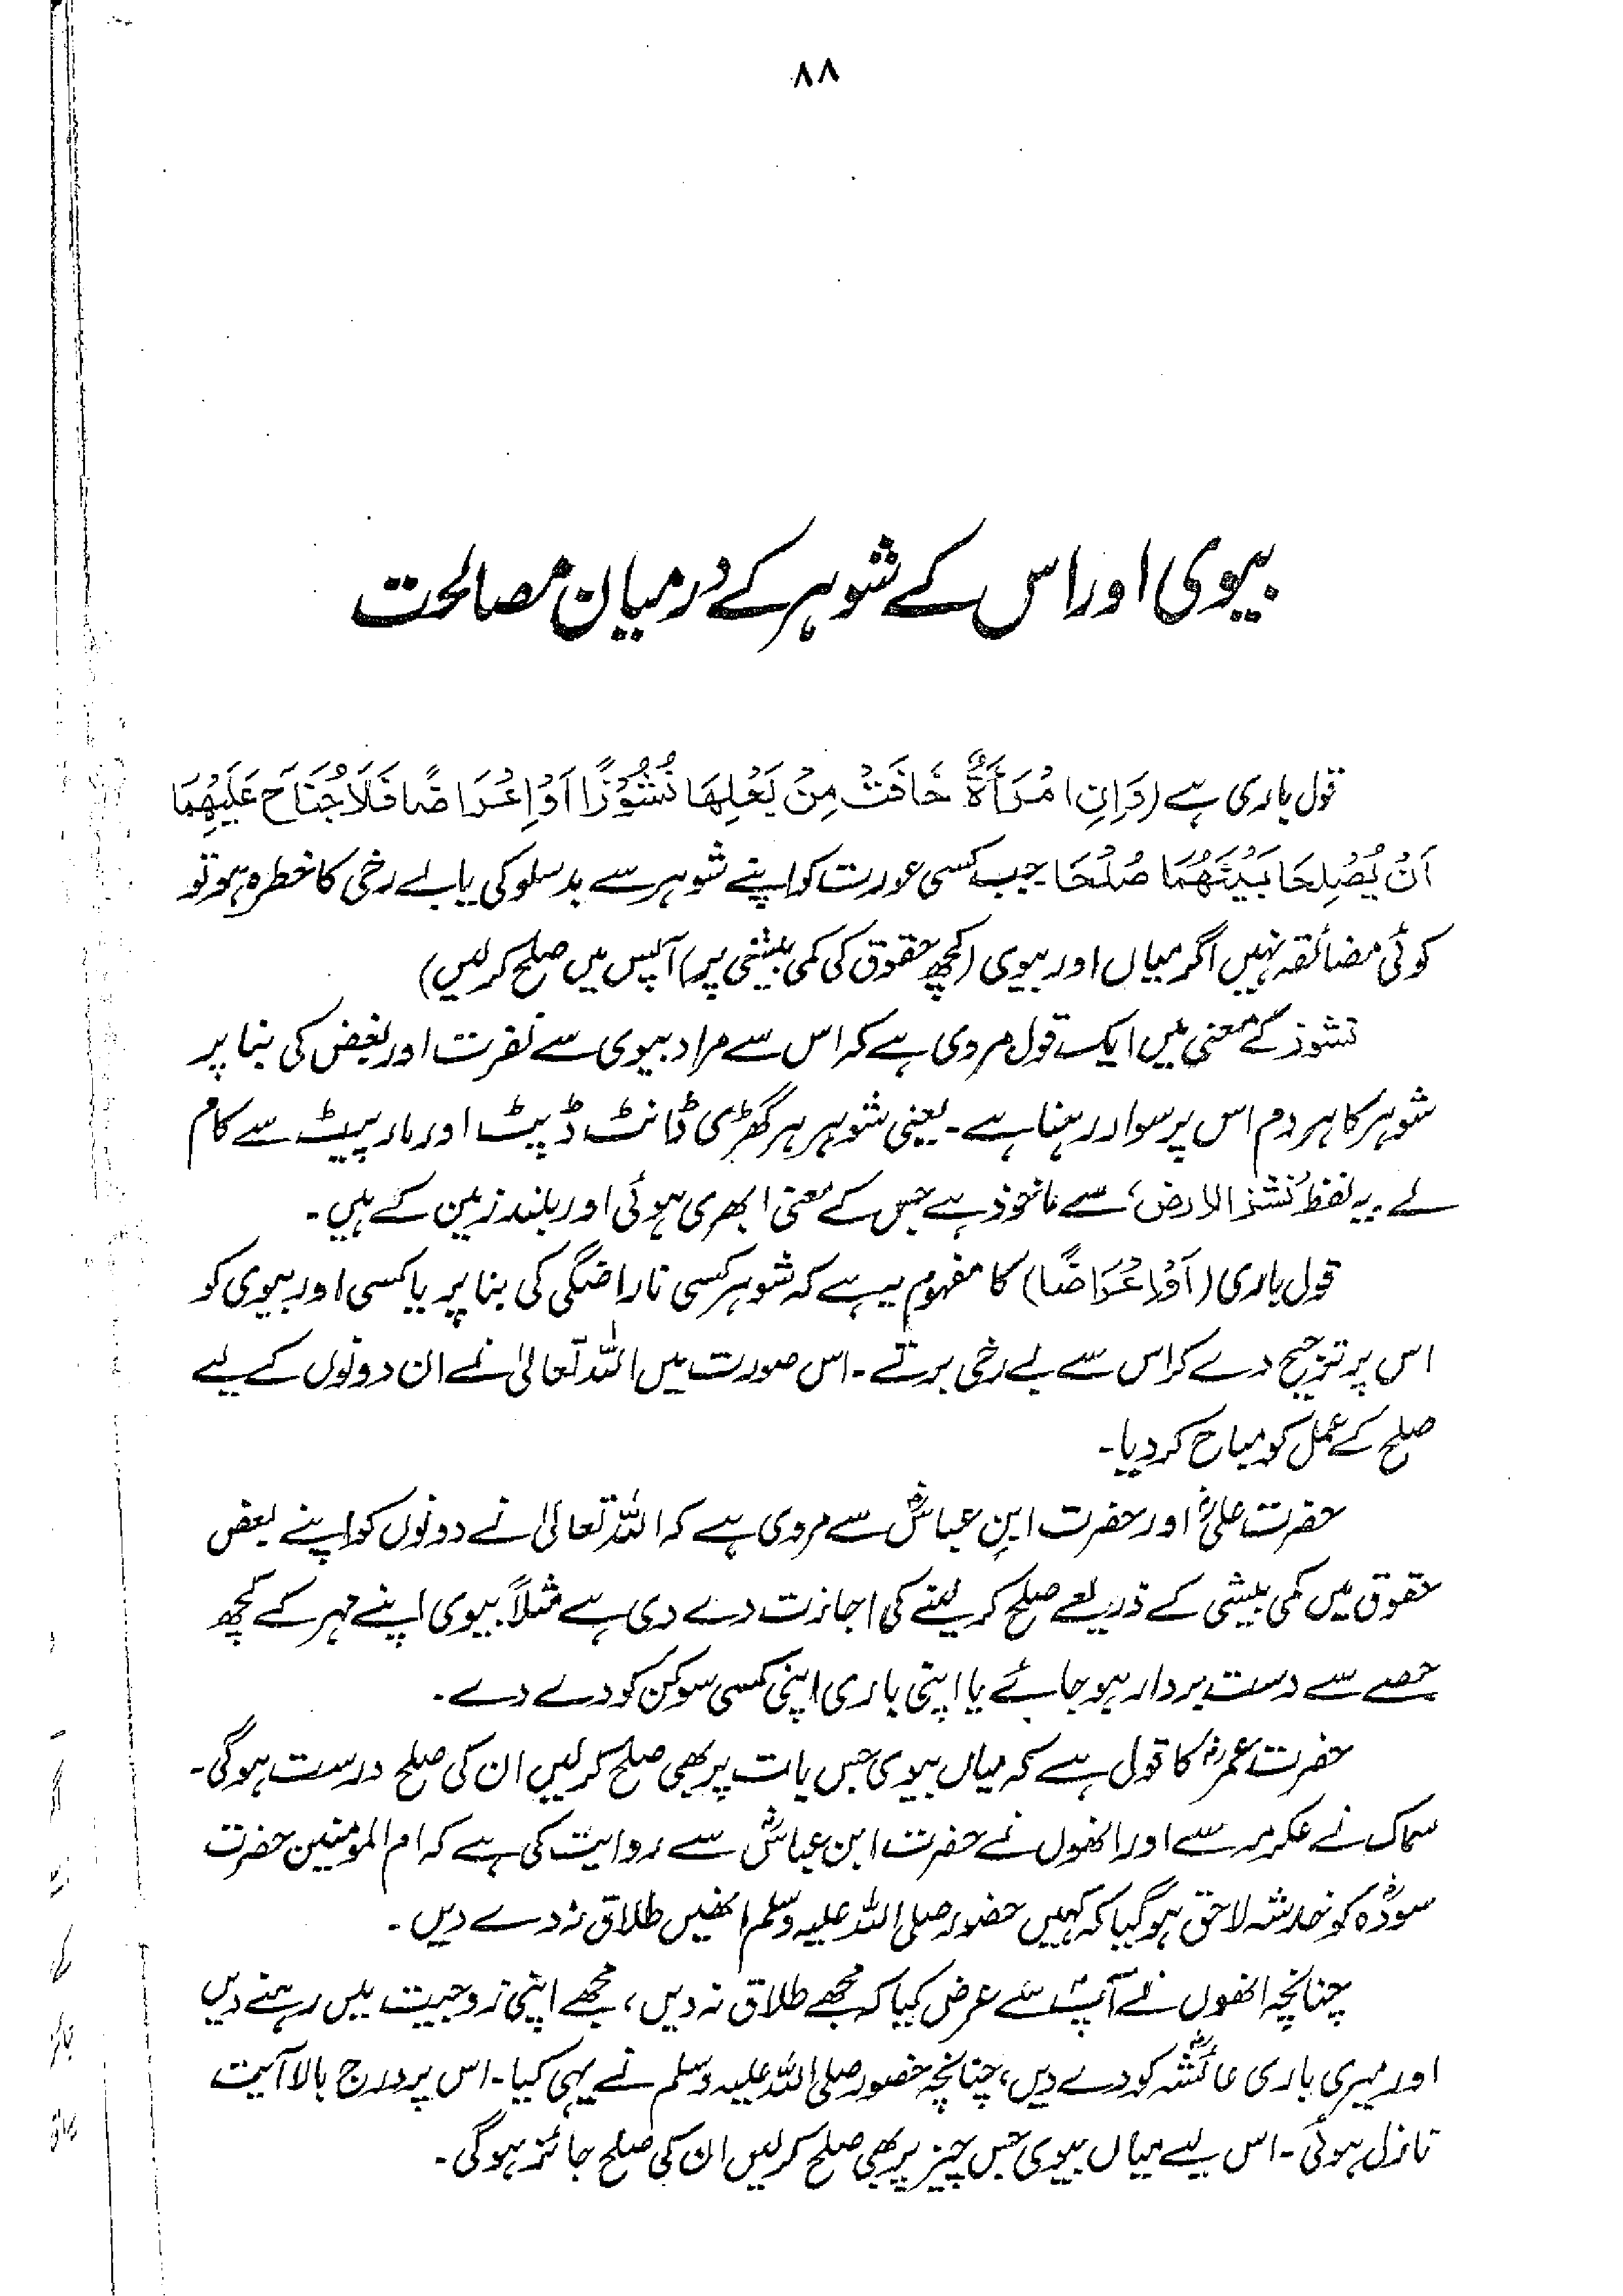 ۸۸
بیوی اور اس کے شوہر کے درمیان مصالحت
قول باری ہے (وَاِنِ امْرَأَةٌ خَافَتْ مِنْ بَعْلِهَا نُشُوْزًا اَوْ اِعْرَاضًا فَلَا جُنَاحَ عَلَيْهِمَا
اَنْ يُصْلِحَا بَيْنَهُمَا صُلْحًا جب کسی عورت کو اپنے شوہر سے بدسلوکی یا بے رخی کا خطرہ ہو تو
کوئی مضائقہ نہیں اگر میاں اور بیوی (کچھ حقوق کی کمی بیشی پر) آپس میں صلح کر لیں)
نشوز کے معنی میں ایک قول مروی ہے کہ اس سے مراد بیوی سے نفرت اور بغض کی بنا پر
شوہر کا ہر دم اس پر سوار رہنا ہے۔ یعنی شوہر ہر گھڑی ڈانٹ ڈپٹ اور مار پیٹ سے کام
لے۔ یہ لفظ ’نشز الارض‘ سے ماخوذ ہے جس کے معنی ابھری ہوئی اور بلند زمین کے ہیں۔
قول باری (اَوْ اِعْرَاضًا) کا مفہوم یہ ہے کہ شوہر کسی ناراضگی کی بنا پر یا کسی اور بیوی کو
اس پر ترجیح دے کر اس سے بے رخی برتے۔ اس صورت میں اللہ تعالیٰ نے ان دونوں کے لیے
صلح کے عمل کو مباح کر دیا۔
حضرت علیؓ اور حضرت ابن عباسؓ سے مروی ہے کہ اللہ تعالیٰ نے دونوں کو اپنے بعض
حقوق میں کمی بیشی کے ذریعے صلح کر لینے کی اجازت دے دی ہے مثلاً بیوی اپنے مہر کے کچھ
حصے سے دست بردار ہو جائے یا اپنی باری اپنی کسی سوکن کو دے دے۔
حضرت عمرؓ کا قول ہے کہ میاں بیوی جس بات پر بھی صلح کر لیں ان کی صلح درست ہوگی۔
سماک نے عکرمہ سے اور انھوں نے حضرت ابن عباسؓ سے روایت کی ہے کہ ام المومنین حضرت
سودہؓ کو خدشہ لاحق ہو گیا کہ کہیں حضور صلی اللہ علیہ وسلم انھیں طلاق نہ دے دیں۔
چنانچہ انھوں نے آپؐ سے عرض کیا کہ مجھے طلاق نہ دیں، مجھے اپنی زوجیت میں رہنے دیں
اور میری باری عائشہؓ کو دے دیں، چنانچہ حضور صلی اللہ علیہ وسلم نے یہی کیا۔ اس پر درج بالا آیت
نازل ہوئی۔ اس لیے میاں بیوی جس چیز پر بھی صلح کر لیں ان کی صلح جائز ہوگی۔